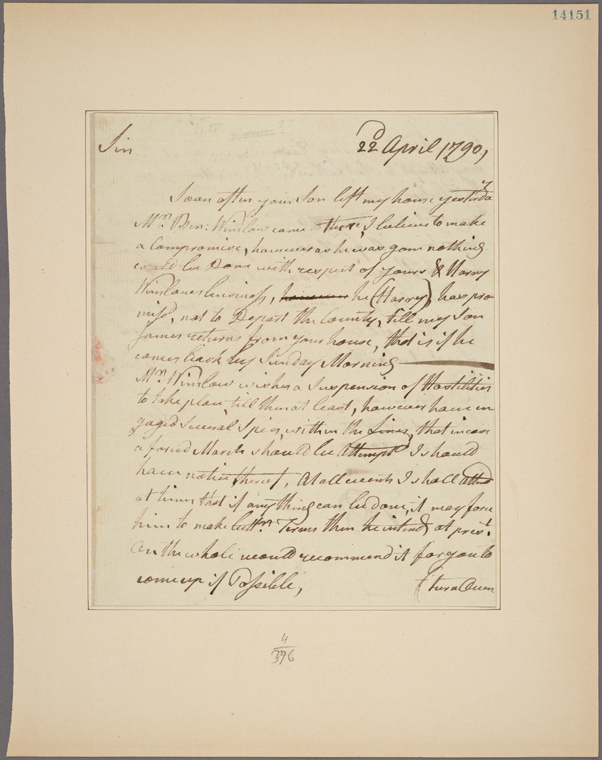 14151
Sir
22d April 1790,
Soon after your Son left my house yesterda
Mr. Ben: Winslow came there, I believe to make
a Compromise, however as he was gone nothing
could be Done with respect of yours & Harry
Winslows business, he (Harry) has pro
miss'd, not to Depart the County, till my Son
James returns from your house, that is if he
comes back by Sunday Morning
Mr. Winslow wishes a Suspension of Hostilities
to take place, till then at least, however have in
gaged several Spies, within the Lines, that in case
a forced March should be Attempt'd I should
have notice thereof, At all events I shall attend
at times, that if any thing can be done, it may force
him to make bettr. Terms then he intends at prest.
on the whole would recommend it for you to
come up if Possible,
(turn Over
4
396